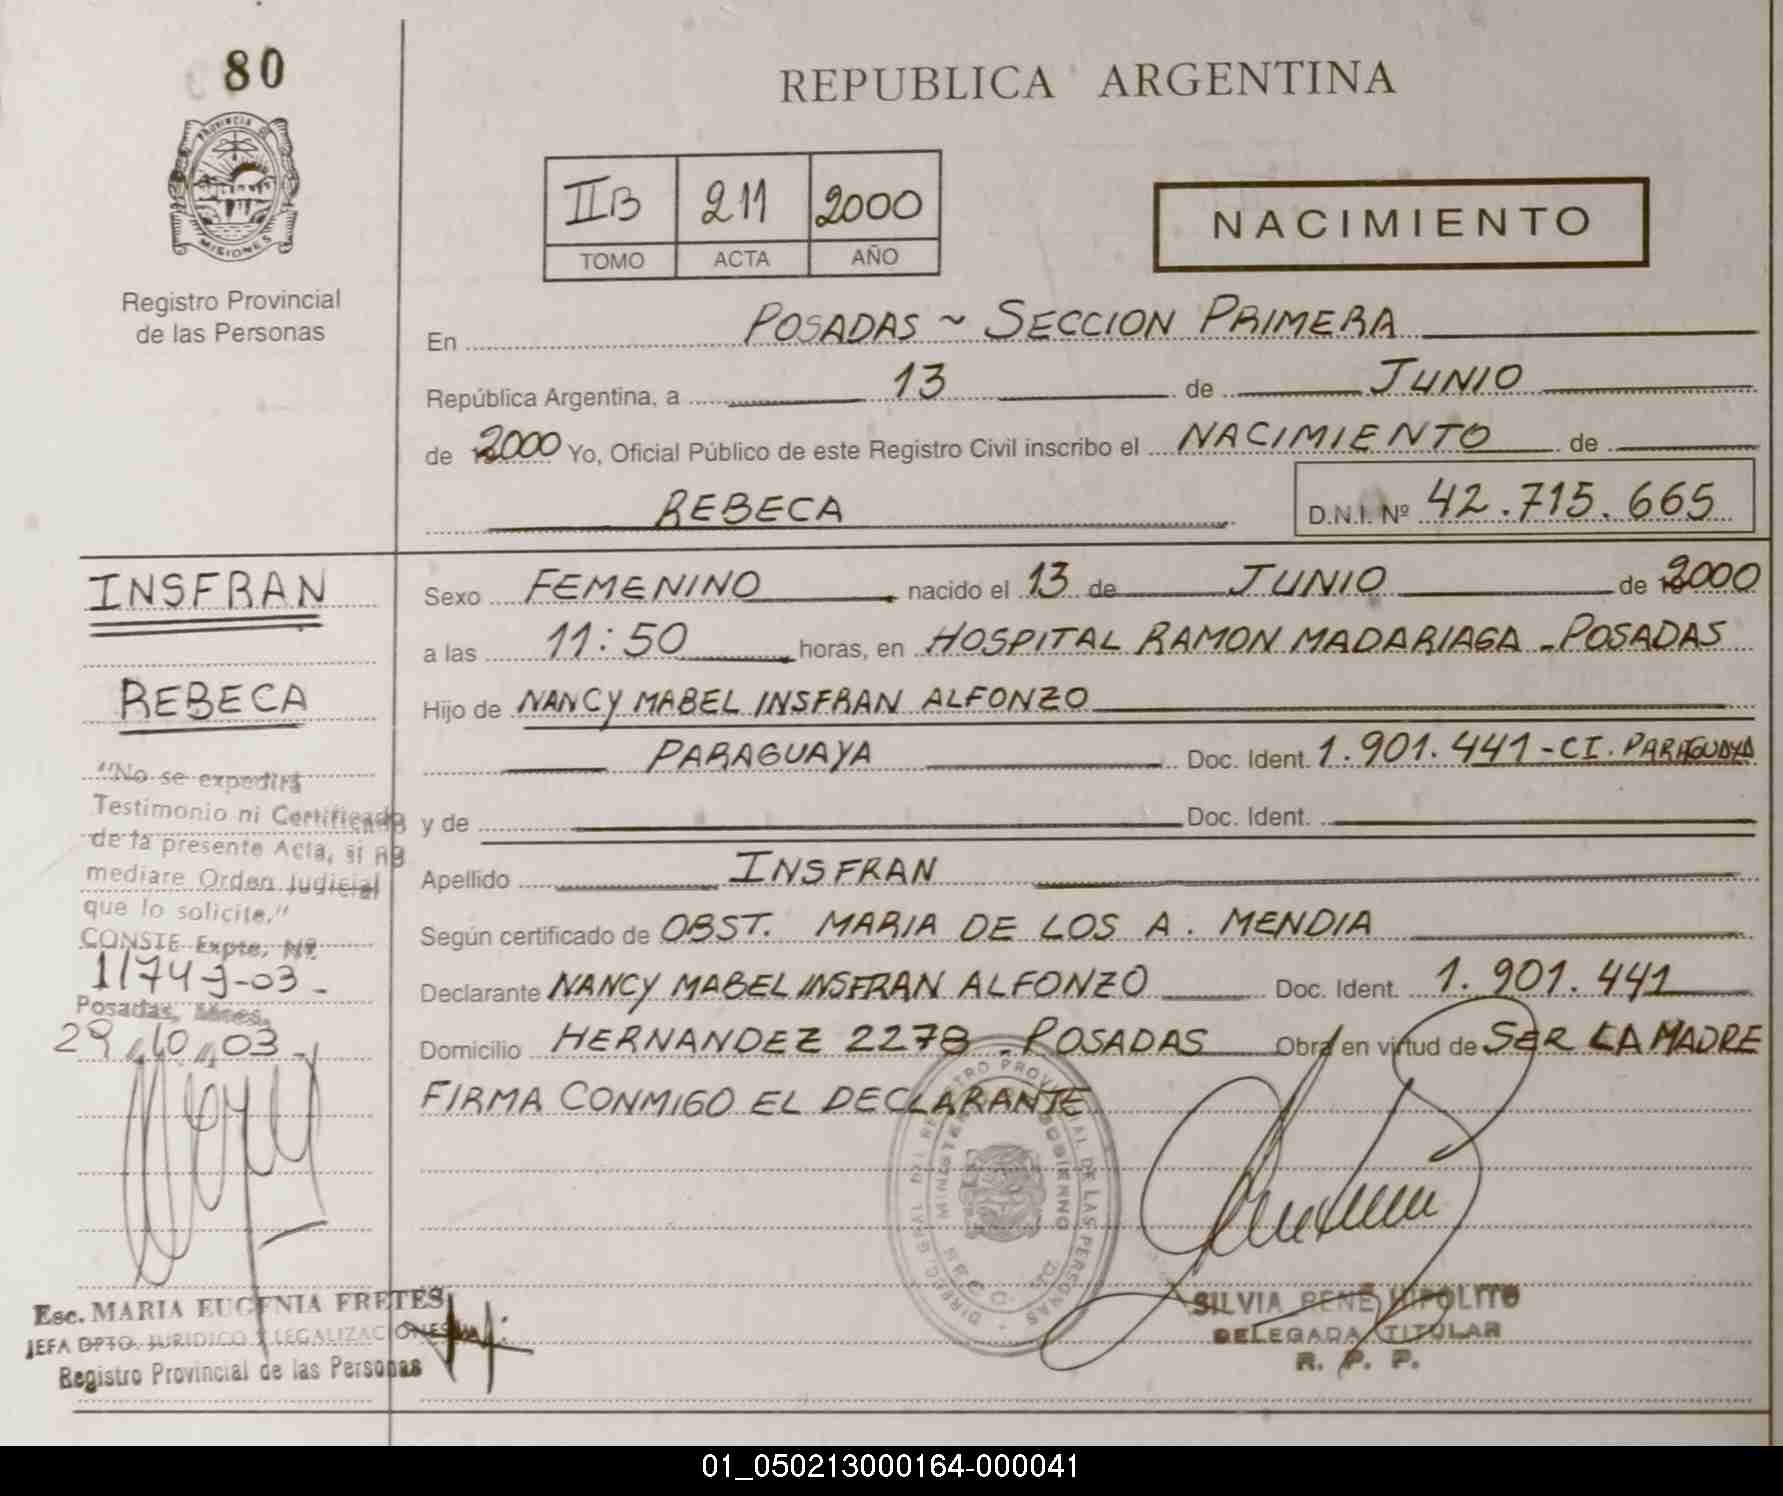 80
PROVINCIA DE
MISIONES
Registro Provincial
de las Personas
REPUBLICA ARGENTINA
IIB 211 2000
TOMO ACTA AÑO
NACIMIENTO
En POSADAS ~ SECCION PRIMERA
República Argentina, a 13 de JUNIO
de 2000 Yo, Oficial Público de este Registro Civil inscribo el NACIMIENTO de
REBECA D.N.I. Nº 42.715.665
INSFRAN
REBECA
"No se expedirá
Testimonio ni Certificado
de la presente Acta, si no
mediare Orden Judicial
que lo solicite."
CONSTE Expte. Nº
11749-03-
Posadas, Mnes.
29,,10,,03.
Esc. MARIA EUGENIA FRETES
JEFA DPTO. JURIDICO Y LEGALIZACIONES
Registro Provincial de las Personas
Sexo FEMENINO nacido el 13 de JUNIO de 2000
a las 11:50 horas, en HOSPITAL RAMON MADARIAGA - POSADAS
Hijo de NANCY MABEL INSFRAN ALFONZO
PARAGUAYA Doc. Ident. 1.901.441-CI. PARAGUAYA
y de Doc. Ident.
Apellido INSFRAN
Según certificado de OBST. MARIA DE LOS A. MENDIA
Declarante NANCY MABEL INSFRAN ALFONZO Doc. Ident. 1.901.441
Domicilio HERNANDEZ 2278 - POSADAS Obra en virtud de SER LA MADRE
FIRMA CONMIGO EL DECLARANTE
DIREC. GRAL. DEL REGISTRO PROVINCIAL DE LAS PERSONAS
SILVIA RENE HIPOLITO
DELEGADA TITULAR
R. P. P.
01_050213000164-000041